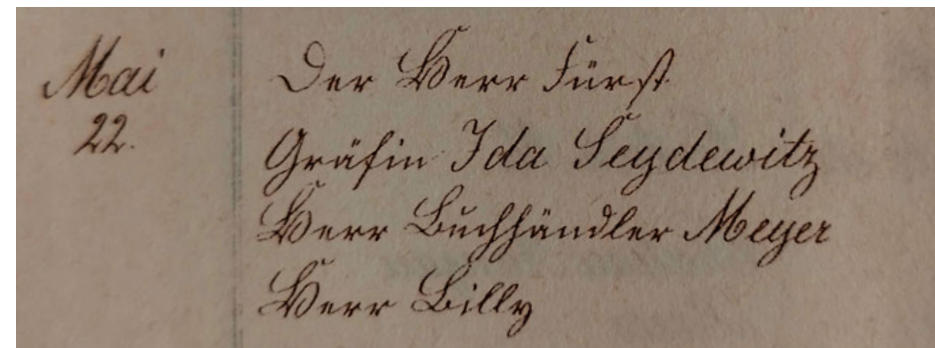 Mai
22.
Der Herr Fürst
Gräfin Ida Seydewitz
Herr Buchhändler Meyer
Herr Billy